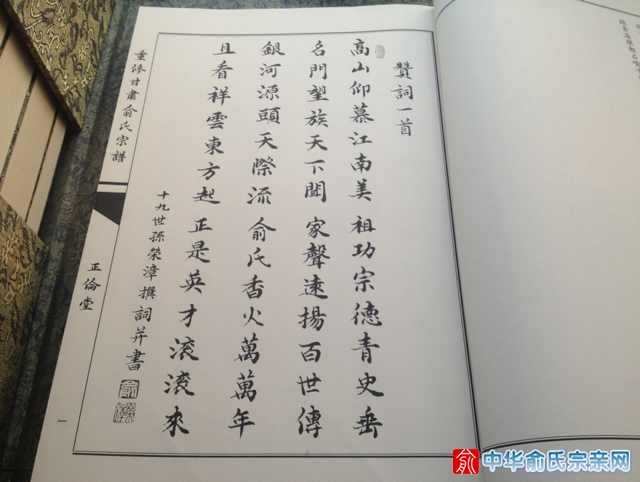 贊詞一首
高山仰慕江南美 祖功宗德青史垂
名門望族天下聞 家聲遠揚百世傳
銀河源頭天際流 俞氏香火萬萬年
且看祥雲東方起 正是英才滾滾來
十九世孫榮漳撰詞并書
重修甘肅俞氏宗譜
正倫堂
一
中华俞氏宗亲网